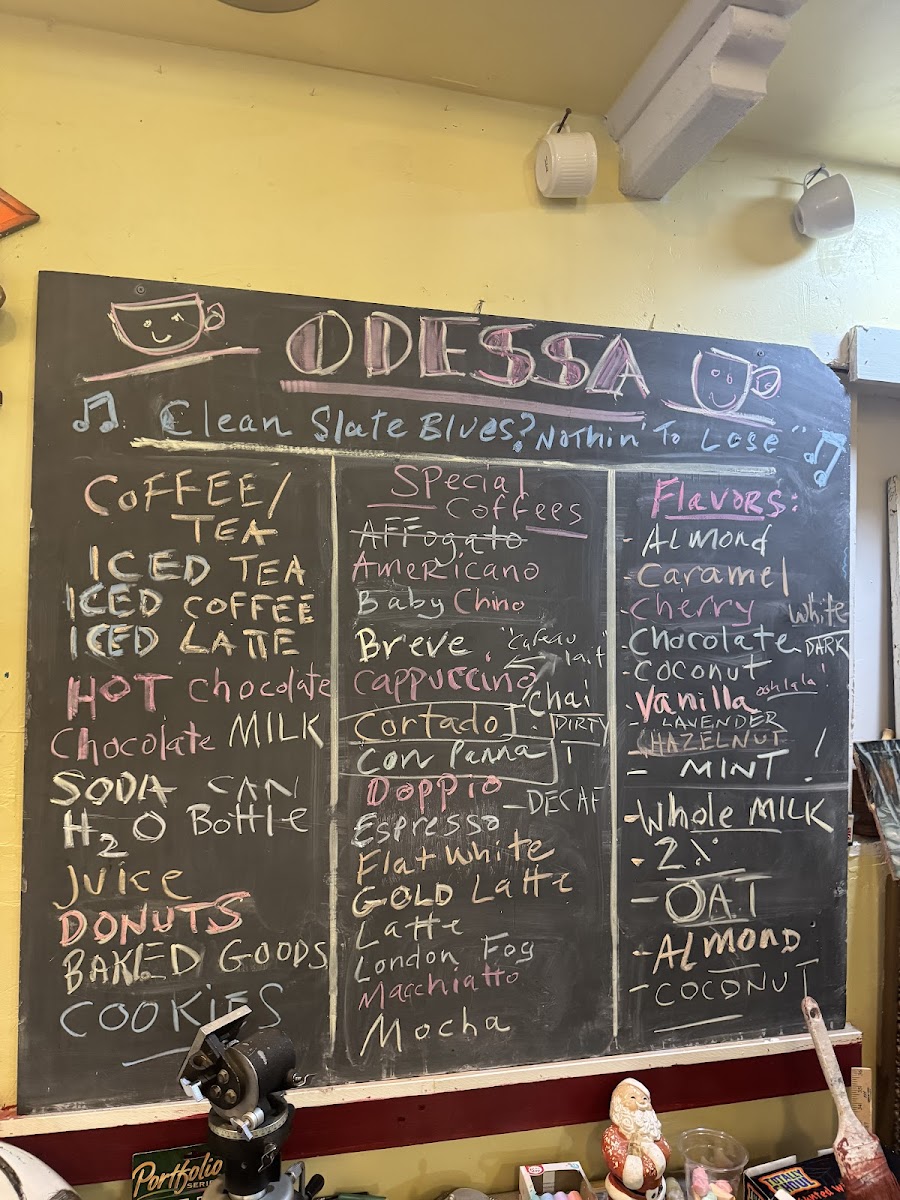 ODESSA
Clean Slate Blues? "Nothin' To Lose"
COFFEE/
TEA
ICED TEA
ICED COFFEE
ICED LATTE
HOT Chocolate
Chocolate MILK
SODA CAN
H2O Bottle
JUICE
DONUTS
BAKED GOODS
COOKIES
Special
Coffees
Affogato
Americano
Baby Chino
Breve "Cafe au
lait"
Cappuccino
Chai
Cortado
DIRTY
Con Panna
Doppio
- DECAF
Espresso
Flat White
GOLD Latte
Latte
London Fog
Macchiatto
Mocha
Flavors:
- Almond
- Caramel
- Cherry
White
- Chocolate - DARK
- Coconut
- Vanilla ooh lala!
- LAVENDER
- HAZELNUT
- MINT !
- Whole MILK
- 2%
- OAT
- ALMOND
- COCONUT
Portfolio
SERIES